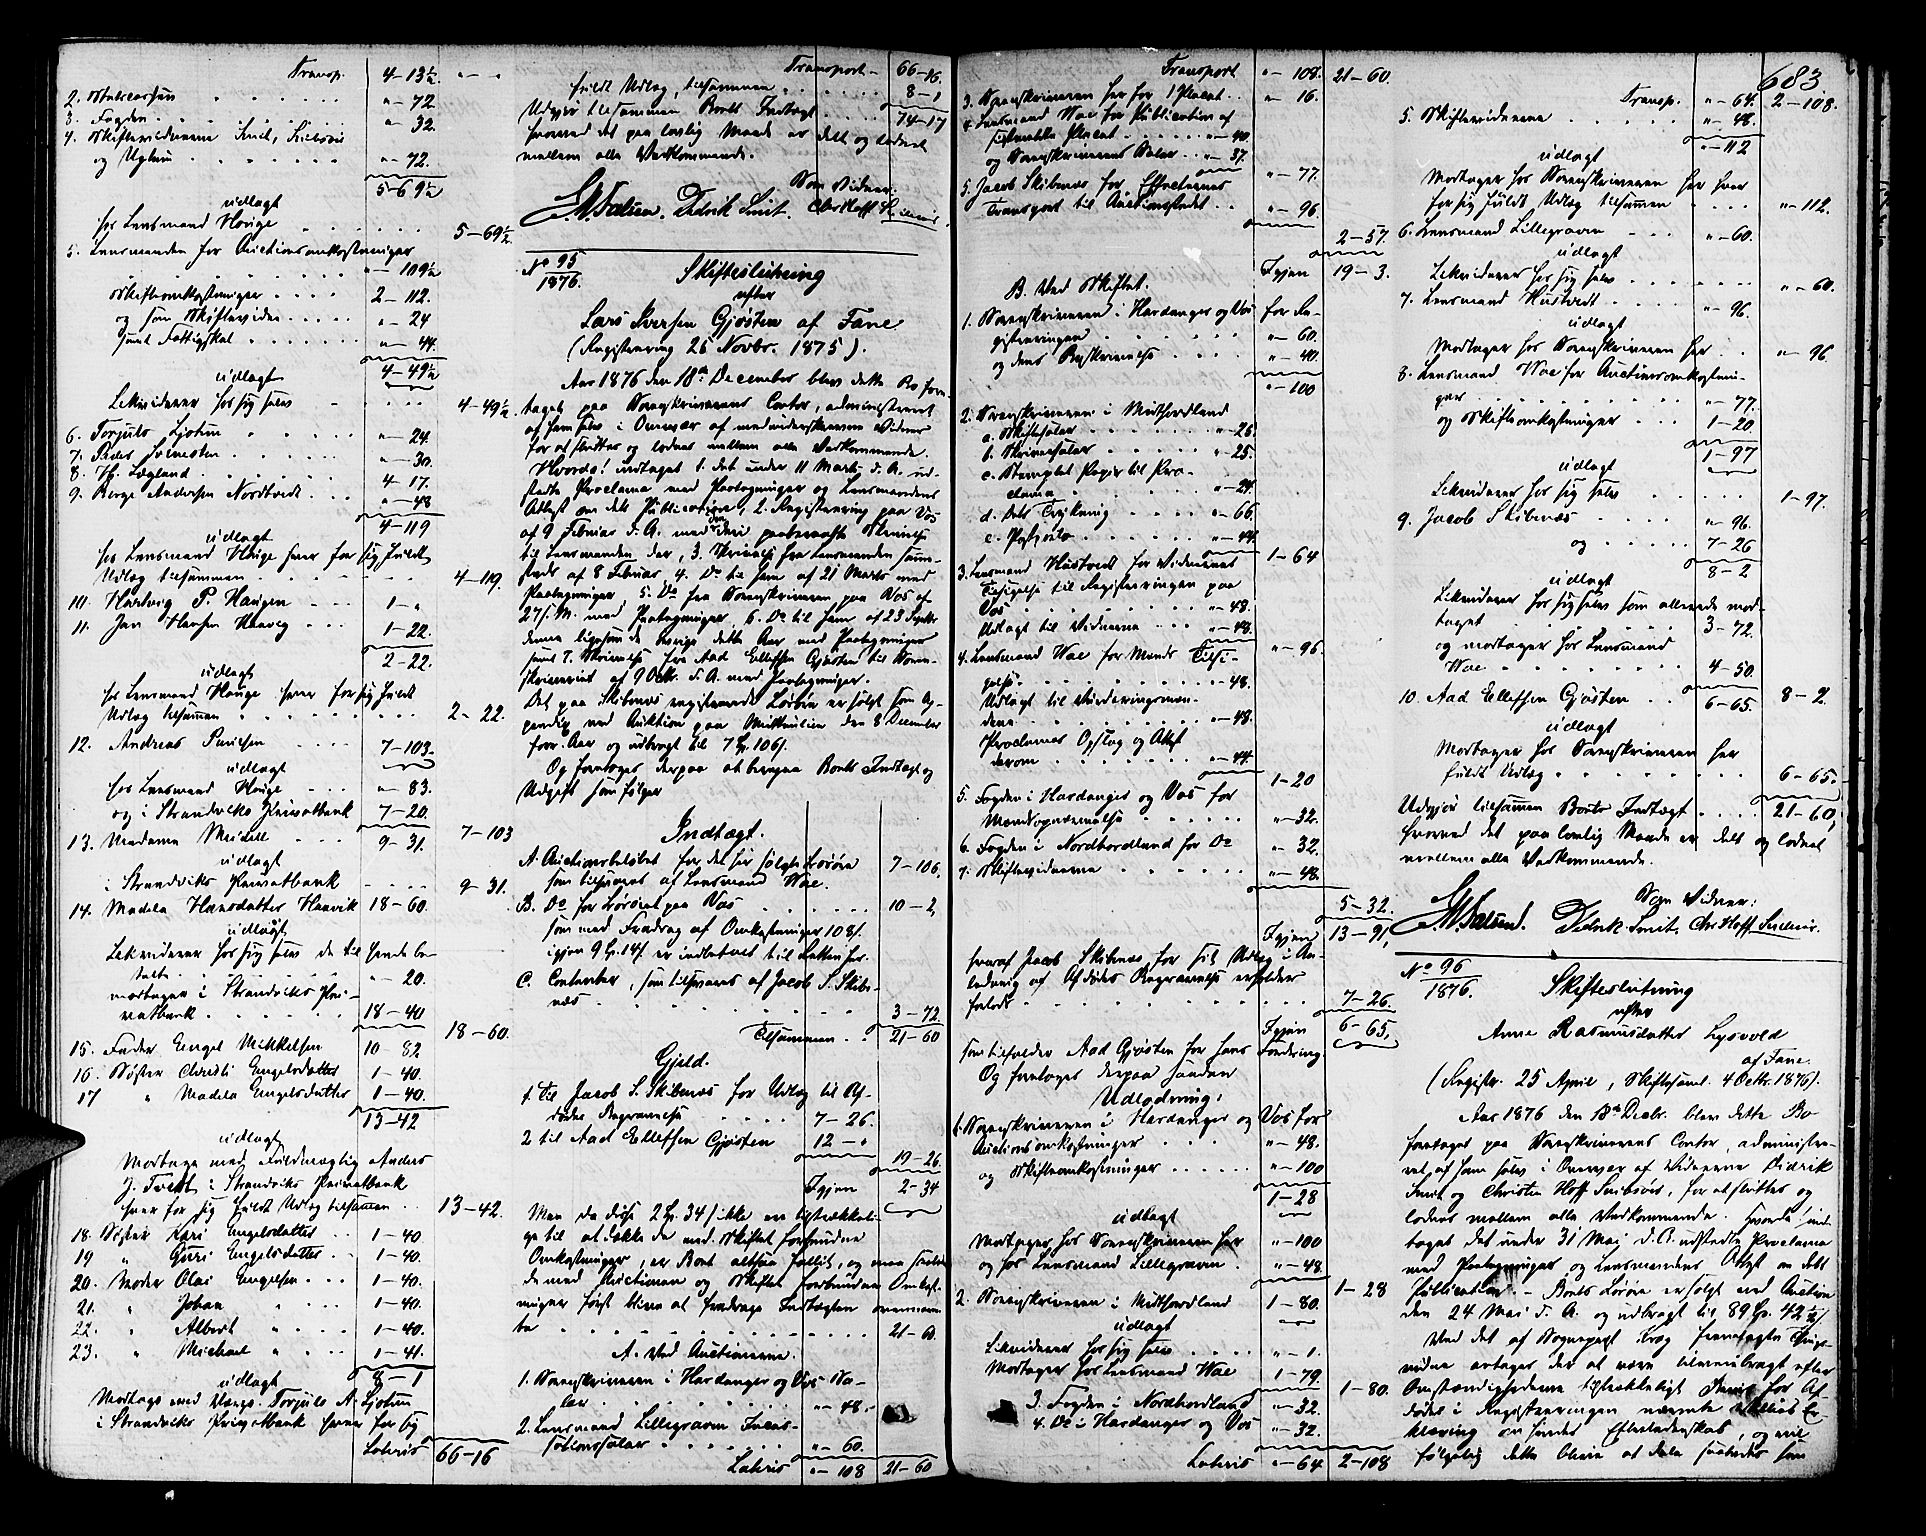 Transp. 4-13½ "-"
2. Andreassen "-72
3. Fogden "-32.
4. Skiftevidnerne Smit,
og "-72.
5-69½
udlagt
hos Lensmand Houge 5-69½
5. Lensmanden for Auctionsomkostninger
"-109½
Skifteomkostninger 2-112.
og som Skiftevidne "-24
samt Fattigskat "-44.
4-49½
udlagt
Likviderer hos sig selv 4-49½
6. Torjuls Ljotun "-24.
7. Peder "-30.
8. H. Lægland 4-17.
9. Børge Andersen Nordtvedt "-48
4-119
udlagt
hos Lensmand Houge hver for sig fuldt
Udlæg tilsammen 4-119.
10. Hartvig P. Haugen 1-"
11. Jan Hansen Haavig 1-22.
2-22.
udlagt
hos Lensmand Houge hver for sig fuldt
Udlæg tilsammen 2-22.
12. Andreas 7-103.
udlagt
hos Lensmand Houge "-83.
og i Strandviks Privatbank 7-20.
7-103
13. Madame Meidell 9-31.
udlagt
i Strandviks Privatbank 9-31.
14. Madela Hansdatter Haavik 18-60.
udlagt
Likviderer hos sig selv de til hende be-
talte "-20.
modtager i Strandviks Pri-
vatbank 18-40
18-60.
15. Fader Engel Mikkelsen 10-82
16. Søster Christi Engelsdatter 1-40.
17 " Madela Engelsdatter 1-40.
13-42
udlagt
Modtage med Fuldmægtig Anders
J. Tvedt i Strandviks Privatbank
hver for sig fuldt Udlæg tilsammen 13-42.
18. Søster Kari Engelsdatter 1-40.
19 " Guri Engelsdatter 1-40.
20. Broder Olai Engelsen 1-40.
21. " Johan 1-40.
22. " Albert 1-40.
23. " Michael 1-41.
8-1
udlagt
Modtage med Værge Torjuls A. Ljotun
i Strandviks Privatbank hver for sig
Lateris 66-16
Transport 66-16.
fuldt Udlæg, tilsammen 8-1
Udgjør tilsammen Boets Indtægt 74-17
hvormed det paa lovlig Maade er delt og lodnet
mellem alle Vedkommende.
Som Vidner:
Didrik Smit. Chr. Hoff
No 95
1876.
Skifteslutning
efter
Lars Iversen Gjøsten af Fane
(Registrering 26 Novbr. 1875).
Aar 1876 den 18de December blev dette Bo fore-
taget paa Sorenskriverens Contor, administreret
af ham selv i Overvær af medunderskrevne Vidner
for at sluttes og lodnes mellem alle Vedkommende.
Hvorda! indtaget 1. det under 11 Marts d. A. ud-
stedte Proclama med Paategninger og Lensmandens
Attest om dets Publication, 2. Registrering paa Vos
af 9 Februar d. A. med den deri paaberaabte Skrivelse
til Lensmanden der, 3. Skrivelse fra Lensmanden samme-
steds af 8 Februar, 4. Do til ham af 21 Marts med
Paategninger, 5. Do fra Sorenskriveren paa Vos af
27 s. M. med Paategninger, 6. Do til ham af 23 Septbr
denne ligesom de øvrige dette Aar med Paategninger
samt 7. Skrivelse fra Aad Ellefsen Gjøsten til Soren-
skriveren af 9 Octbr. d. A. med Paategninger.
Det paa Skibenæs registrerede Løsøre er solgt
ved Auktion paa den 8 December
forr. Aar og udbragt til 7 Sp. 106 s.
Og foretages derpaa at beregne Boets Indtægt og
Udgift som følger
Indtægt.
A. Auctionsbeløbet for det her solgte Løsøre
som tilsvares af Lensmand Wæe. 7-106.
B. Do for Løsøret paa Vos 10-2,
som med Fradrag af Omkostninger 108 s.
igjen 9 Sp. 14 s. er indbetalt til
C. Contanter, som tilsvares af Jacob S. Skibe-
næs 3-72
Tilsammen 21-60
Gjeld.
1. til Jacob S. Skibenæs for Udlæg til Af-
dødes Begravelse 7-26.
2 til Aad Ellefsen Gjøsten 12-"
19-26.
Igjen 2-34
Men da disse 2 Sp. 34 s. ikke er tilstrækkeli-
ge til at dække de med Skiftet forbundne
Omkostninger, er Boet altsaa fallit, og maa saale-
de med Auctionen og Skiftet forbundne Omkost-
ninger først blive at fradrage Indtægten ovennævn-
te 21-60.
A. Ved Auctionerne.
1. Sorenskriveren i Hardanger og Vos Sa-
lær "-48.
2. Lensmand Lillegraven Incas-
sationssalær "-60.
Lateris "-108 21-60
Transport "-108. 21-60.
3. Sorenskriveren her for 1 Placat "-16.
4. Lensmand Wæe for Publication af
Placat "-40.
og Sorenskriverens Salær "-37.
"-77.
5. Jacob Skibenæs for Effecternes
Transport til Auctionsstedet "-96.
2-57.
Igjen 19-3.
B. Ved Skiftet.
1. Sorenskriveren i Hardanger og Vos for Re-
gistreringen "-60.
og dens Beskrivelse "-40.
"-100
2. Sorenskriveren i Midthordland
a. Skiftesalær "-26.
b. Skriversalær "-25.
c. Stemplet Papir til Pro-
clama "-24.
d. Dets Trykning "-66.
e. Postporto "-44.
1-64
3. Lensmand Hustvedt for Vidnernes
Tilsigelse til Registreringen paa
Vos "-48.
Udlagt til Vidnerne "-48.
"-96.
4. Lensmand Wæe for Mænds Tilsi-
gelse "-48.
Udlagt til Vurderingsmæn-
dene "-48.
Proclamas Opslag og Attest
derom "-44
1-20
5. Fogden i Hardanger og Vos for
Mændsopnævnelse "-32.
6. Fogden i Nordhordland for Do "-32.
7. Skiftevidnerne "-48.
5-32.
Igjen 13-91,
hvoraf Jacob Skibenæs for sit Udlæg i An-
ledning af Afdødes Begravelse erholder
forlods 7-26.
Igjen 6-65,
som tilfalder Aad Gjøsten for hans Fordring
Og foretages derpaa saadan
Udlodning:
1. Sorenskriveren i Hardanger og Vos for
Auctionsomkostninger "-48.
og Skifteomkostninger "-100
1-28
udlagt
Modtager hos Sorenskriveren her "-100
og hos Lensmand Lillegraven "-48.
1-28
2. Sorenskriveren i Midthordland 1-80.
udlagt
Likviderer hos sig selv "-1.
Modtager hos Lensmand Wæe 1-79.
1-80.
3. Fogden i Nordhordland "-32.
4. Do i Hardanger og Vos "-32.
Lateris "-64 2-108
683
Transp. "-64. 2-108.
5. Skiftevidnerne "-48.
"-112
udlagt
Modtager hos Sorenskriveren her hver
for sig fuldt Udlæg tilsammen "-112.
6. Lensmand Lillegraven "-60.
udlagt
Likviderer hos sig selv "-60.
7. Lensmand Hustvedt "-96.
udlagt
Modtager hos Sorenskriveren her "-96
8. Lensmand Wæe for Auctionsomkostnin-
ger "-77.
og Skifteomkostninger 1-20
1-97
udlagt
Likviderer hos sig selv 1-97.
9. Jacob Skibenæs "-96.
og 7-26
8-2
udlagt
Likviderer hos sig selv som allerede mod-
taget 3-72.
og modtager hos Lensmand
Wæe 4-50.
8-2.
10. Aad Ellefsen Gjøsten 6-65.
udlagt
Modtager hos Sorenskriveren her
fuldt Udlæg 6-65.
Udgjør tilsammen Boets Indtægt 21-60,
hvormed det paa lovlig Maade er delt og lodnet
mellem alle Vedkommende.
Som Vidner:
Didrik Smit, Chr. Hoff
No 96
1876.
Skifteslutning
efter
Anne Rasmusdatter Lysvold
af Fane
(Registr. 25 April, Skiftesaml. 4 Octbr. 1876).
Aar 1876 den 18de Decbr. blev dette Bo
foretaget paa Sorenskriverens Contor, administre-
ret af ham selv i Overvær af Vidnerne Didrik
Smit og Christen Hoff, for at sluttes og
lodnes mellem alle Vedkommende. Hvorda! ind-
taget det under 31 Mai d. A. udstedte Proclama
med Paategninger og Lensmandens Attest om dets
Publication. – Boets Løsøre er solgt ved Auction
den 24 Mai d. A. og udbragt til 89 Sp. 42½ s.
Ved det af Sogneprest Krog fremlagte
antages der at være tilveiebragt efter
Omstændighederne tilstrækkeligt Bevis for Af-
dødes i Registreringen nævnte Er-
klæring om hendes Efterladenskab, og vil
følgelig dette blive at dele saaledes som